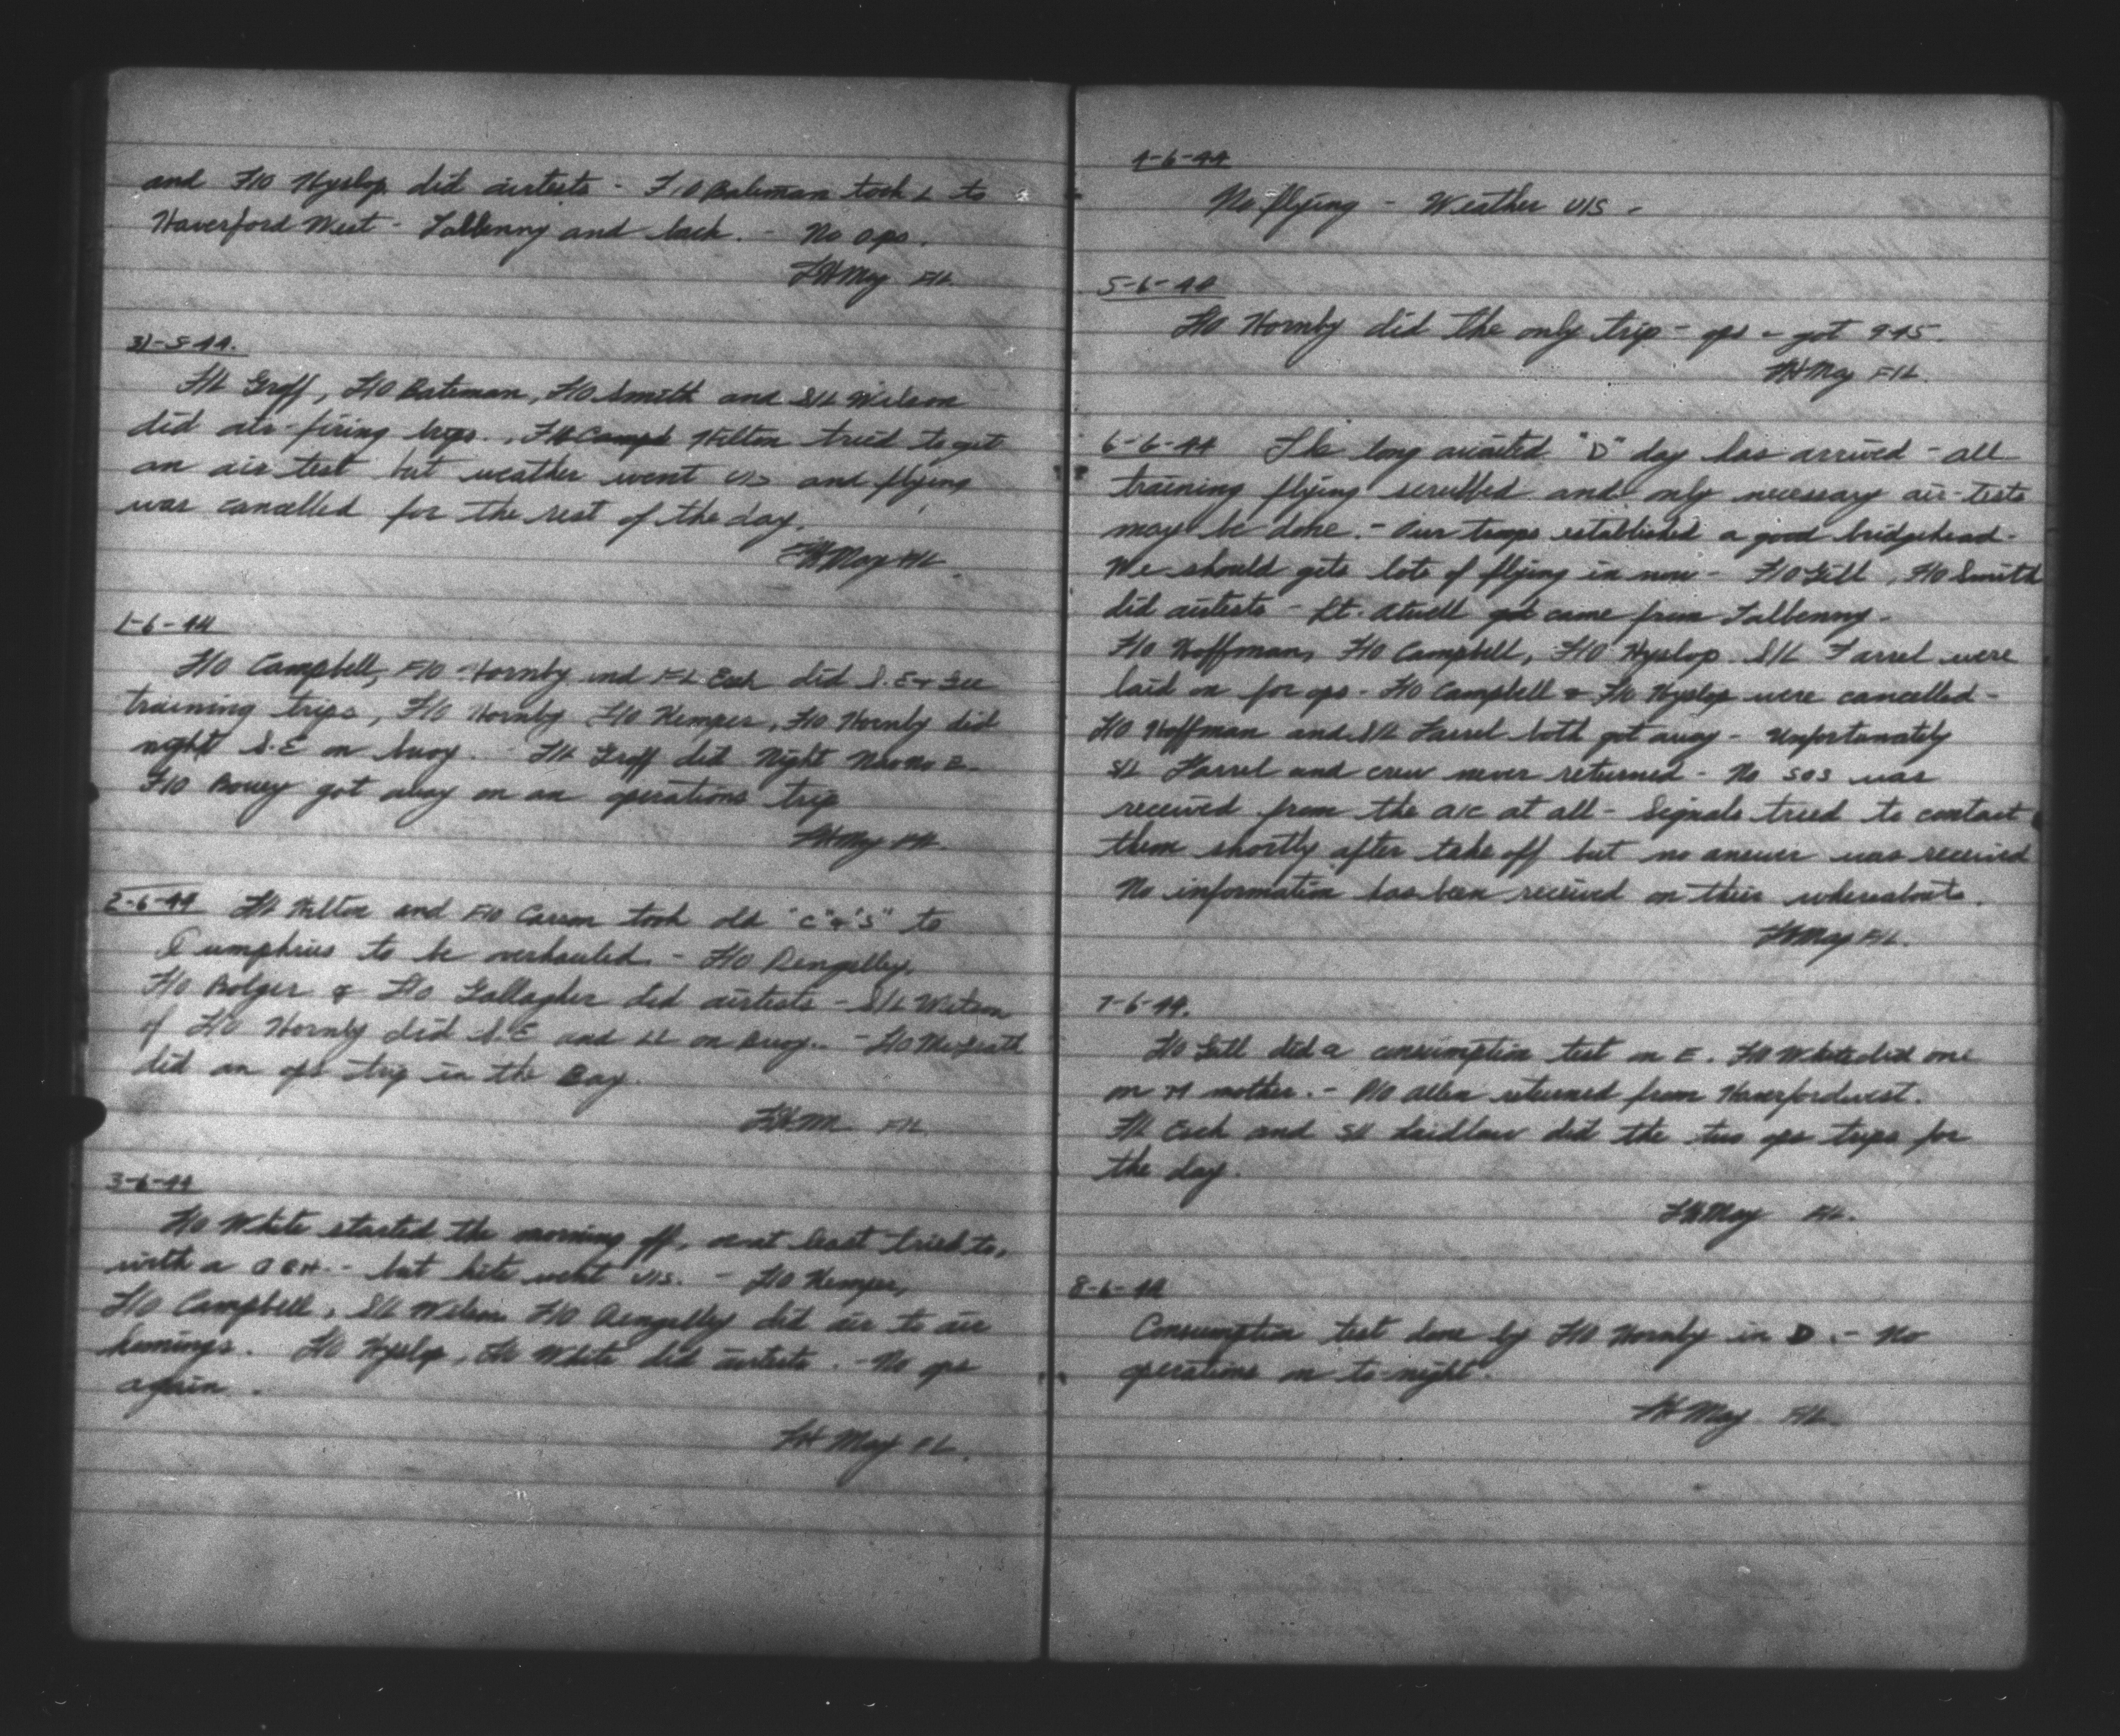 and F/O Hyslop did airtests - F/O Bateman took L to
Haverford West - Talbenny and back. - No ops.
FHMay F/L.
31-5-44.
F/L Groff, F/O Bateman, F/O Smith and S/L Wilson
did air-firing trips. Hilton tried to get
an air test but weather went U/S and flying
was cancelled for the rest of the day.
FHMay F/L
1-6-44
F/O Campbell, F/O Hornby and F/L Esch did S.E +
training trips, F/O Hornby F/O Kemper, F/O Hornby did
night S.E on buoy. - F/L Groff did Night
F/O Bovey got away on an operations trip
FHMay F/L.
2-6-44 F/L Hilton and F/O Carson took old "C" & "S" to
Dumphries to be overhauled - F/O Dengelley,
F/O Bolger & F/O Gallagher did airtests - S/L Watson
of F/O Hornby did S.E and LL on Buoy. - F/O McGrath
did an ops trip in the Bay.
FHM F/L
3-6-44
F/O White started the morning off, or at least tried to,
with a - but kite went U/S. - F/O Kemper,
F/O Campbell, S/L Wilson F/O Dengelley did air to air
homings. F/O Hyslop, F/O White did airtests. - No ops
again.
FH May F/L.
4-6-44
No flying - Weather U/S -
5-6-44
F/O Hornby did the only trip - ops - got 9.45.
FHMay F/L.
6-6-44 The long awaited "D" day has arrived - all
training flying scrubbed and only necessary air-tests
may be done. - Our troops established a good bridgehead.
We should gets lots of flying in now - F/O Gill, F/O Smith
did airtests - Lt. Atwell got came from Talbenny -
F/O Hoffman, F/O Campbell, F/O Hyslop S/L Farrel were
laid on for ops - F/O Campbell & F/O Hyslop were cancelled -
F/O Hoffman and S/L Farrel both got away - Unfortunately
S/L Farrel and crew never returned - No SOS was
received from the a/c at all - Signals tried to contact
them shortly after take off but no answer was received
No information has been received on their whereabouts.
FHMay F/L.
7-6-44.
F/O Gill did a consumption test on E. F/O White did one
on M mother. - P/O Allen returned from Haverfordwest.
F/L Esch and S/L Laidlaw did the two ops trips for
the day.
FHMay F/L.
8-6-44
Consumption test done by F/O Hornby in D. - No
operations on to-night.
FH May F/L.